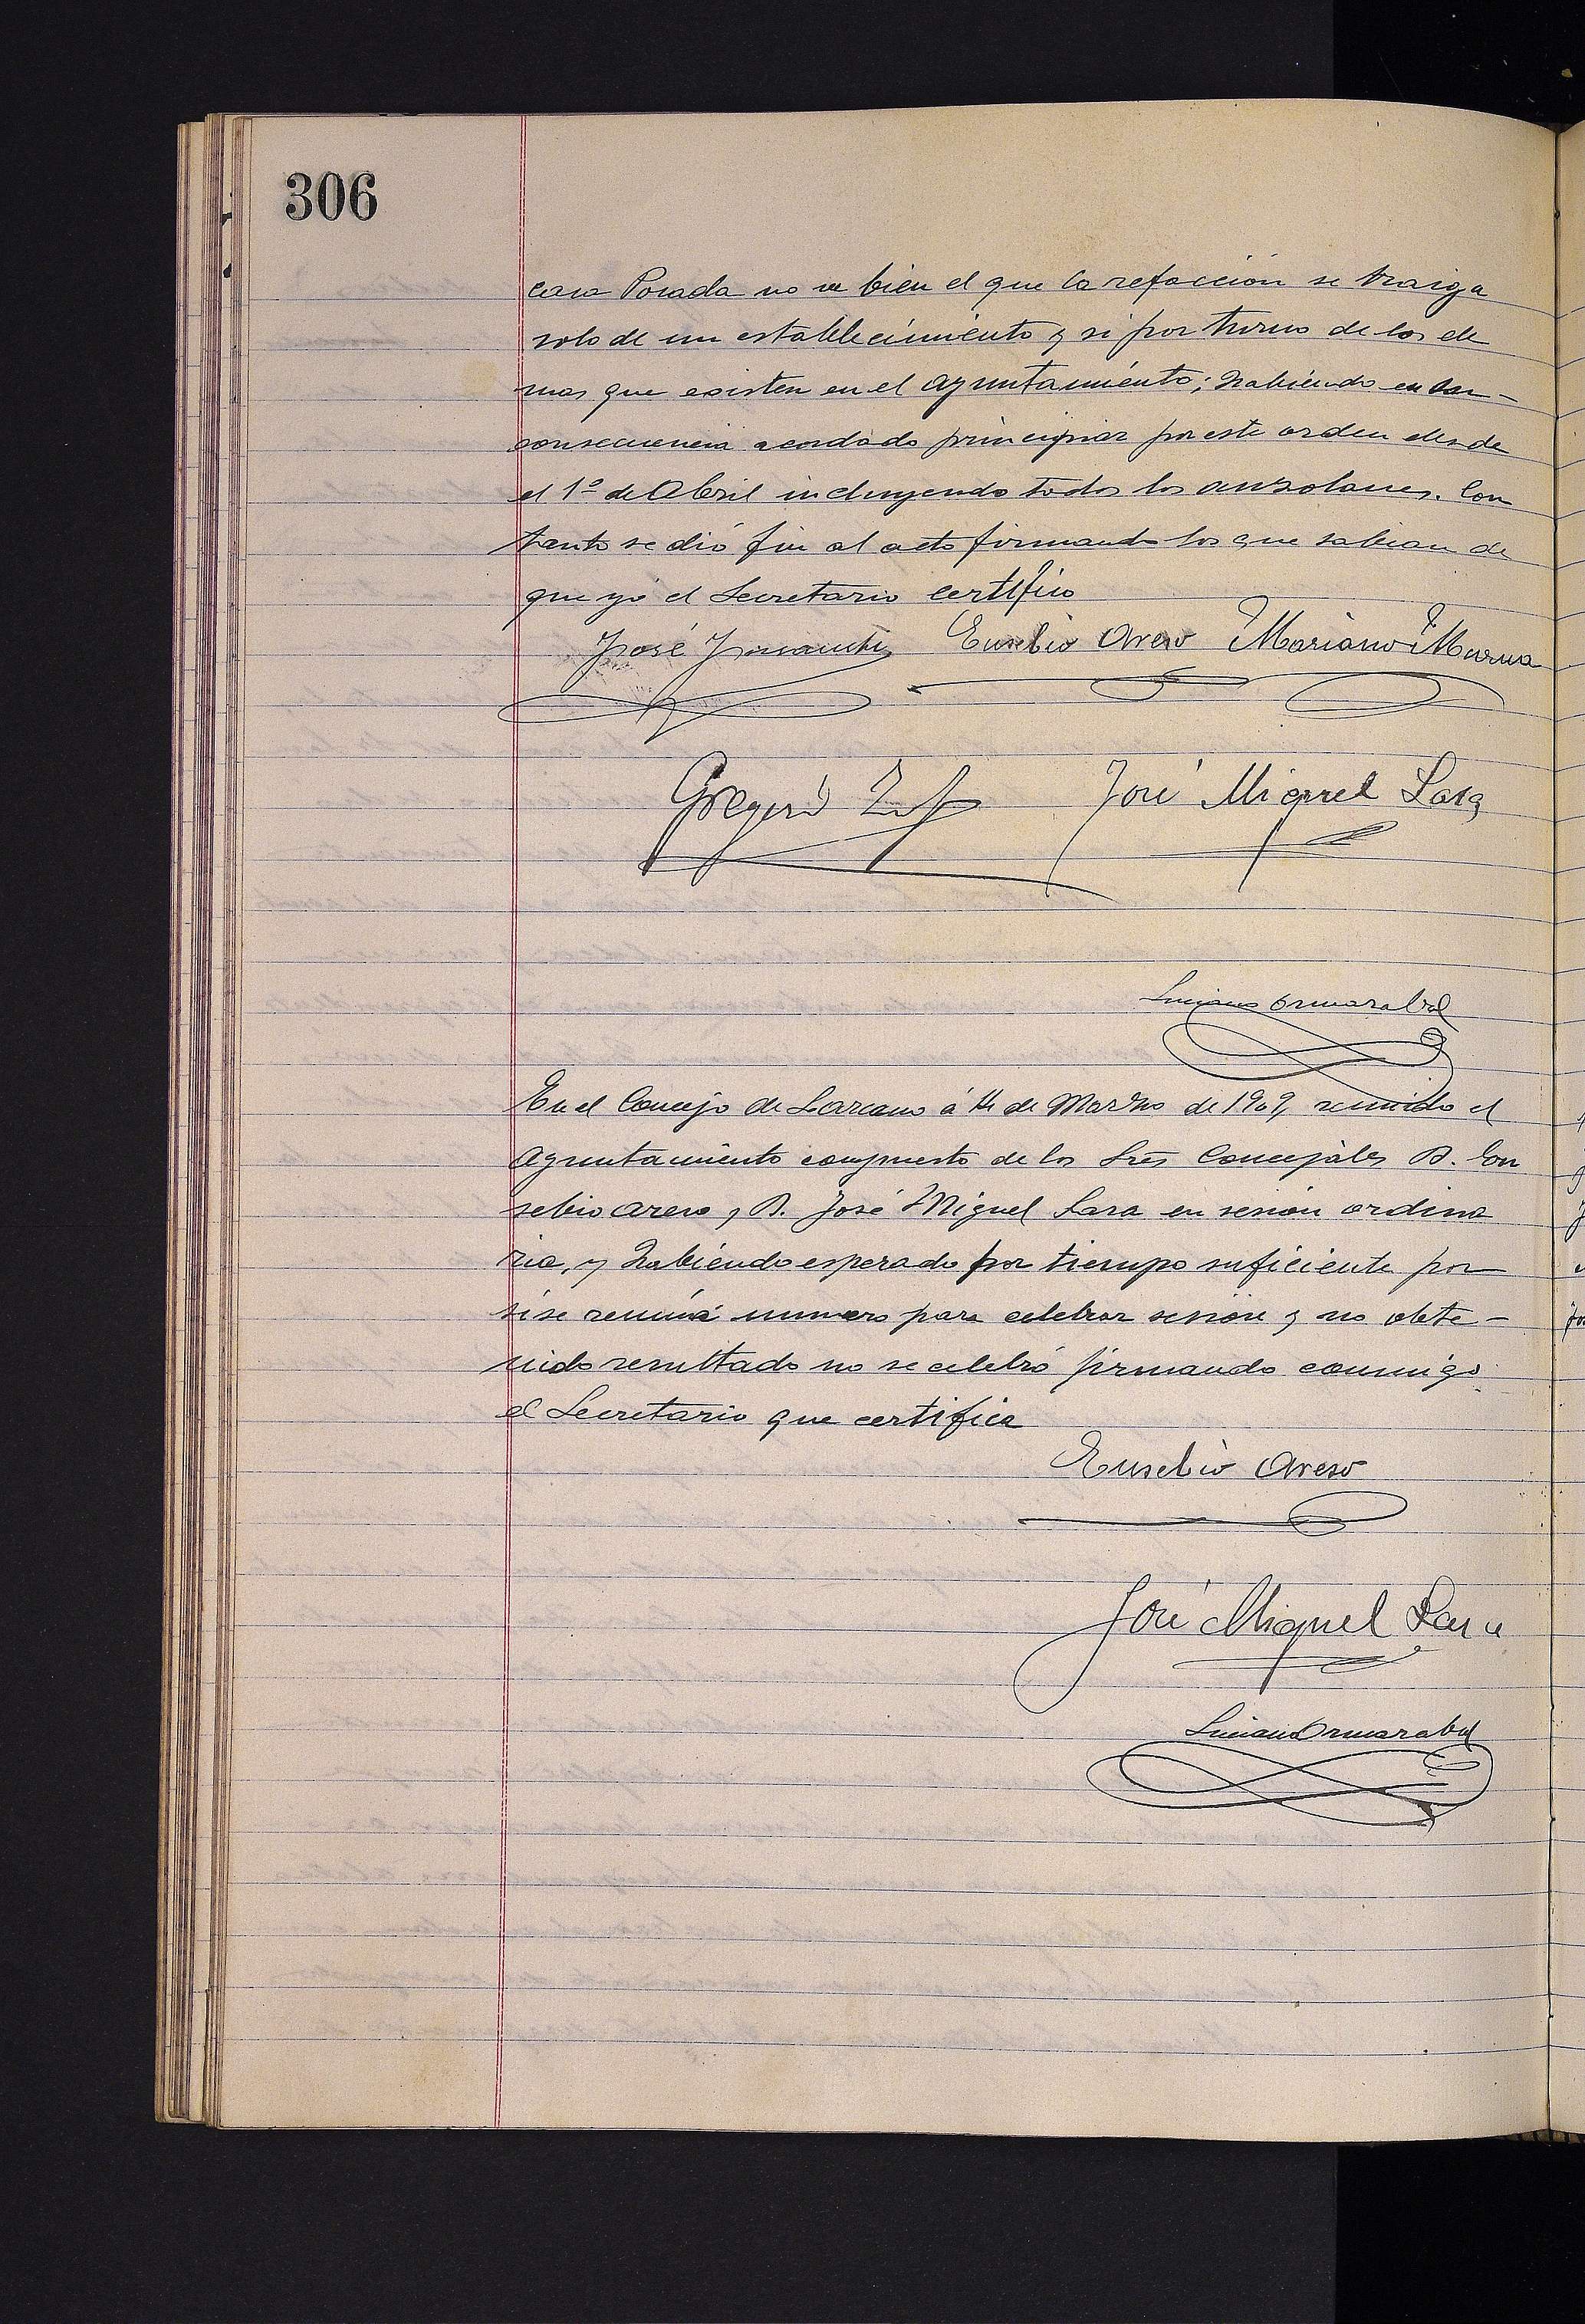 306
casa Posada no ve bien el que la refacción se traiga
solo de un establecimiento y si por turno de los de
mas que existen en el Ayuntamiento; habiendo en
consecuencia acordado principiar por este orden desde
el 1º de Abril incluyendo todos los Con
tanto se dió fin al acto firmando los que sabian de
que yo el Secretario certifico
José Eusebio Areso Mariano
Gregorio José Miguel Lasa
Luciano Ormazabal
En el Concejo de Lazcano á 14 de Marzo de 1909, reunido el
Ayuntamiento compuesto de los Sres Concejales D. Eu
sebio Areso, D. José Miguel Lasa en sesion ordina
ria, y habiendo esperado por tiempo suficiente por
si se reunia numero para celebrar sesion y no obte-
nido resultado no se celebró firmando conmigo
el Secretario que certifica
Eusebio Areso
José Miguel Lasa
Luciano Ormazabal